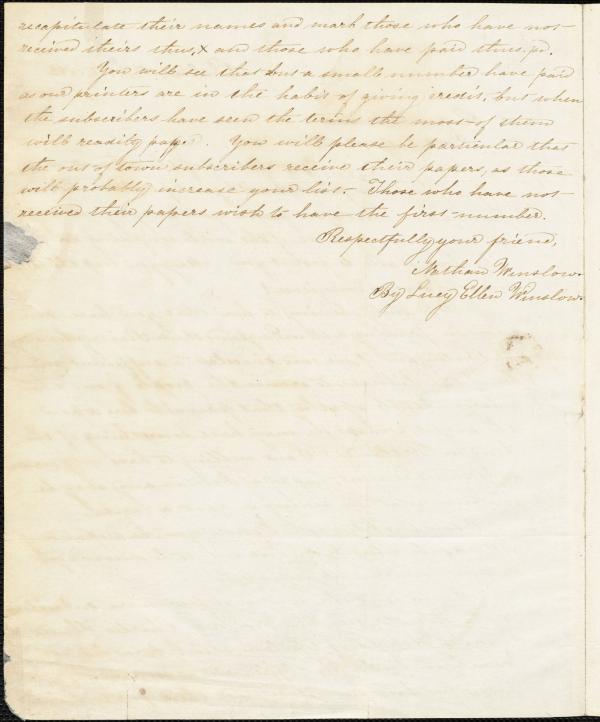 recapitulate their names and mark those who have not
received theirs thus, x and those who have paid thus. pd.
You will see that but a small number have paid
as our printers are in the habit of giving credit, but when
the subscribers have seen the terms the most of them
will readily pay. You will please be particular that
the out of town subscribers receive their papers, as those
will probably increase your list. Those who have not
received their papers wish to have the first number.
Respectfully your friend,
Nathan Winslow.
By Lucy Ellen Winslow.